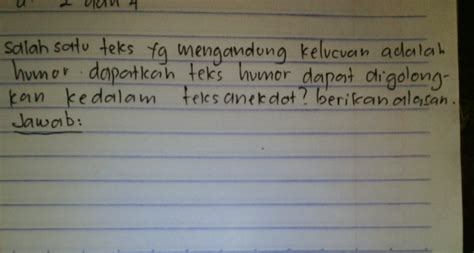 2 dan 4
salah satu teks yg mengandung kelucuan adalah
humor. dapatkah teks humor dapat digolong-
kan kedalam teks anekdot? berikan alasan.
Jawab: